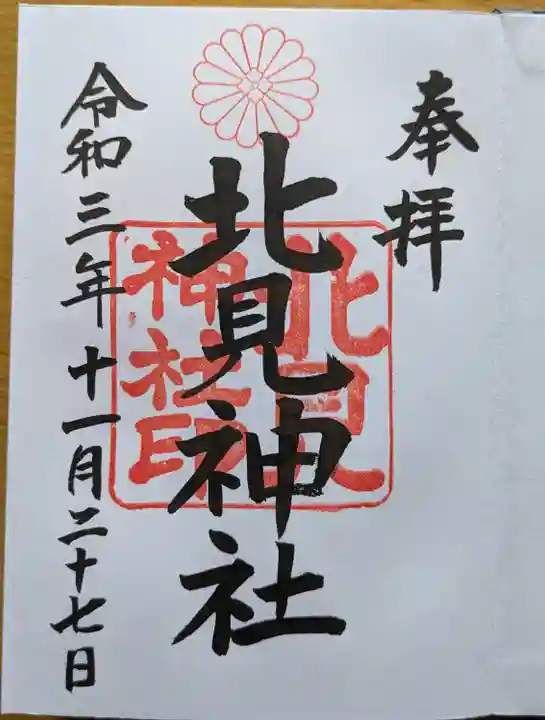 奉拝
北見神社
北見神社印
令和三年十一月二十七日